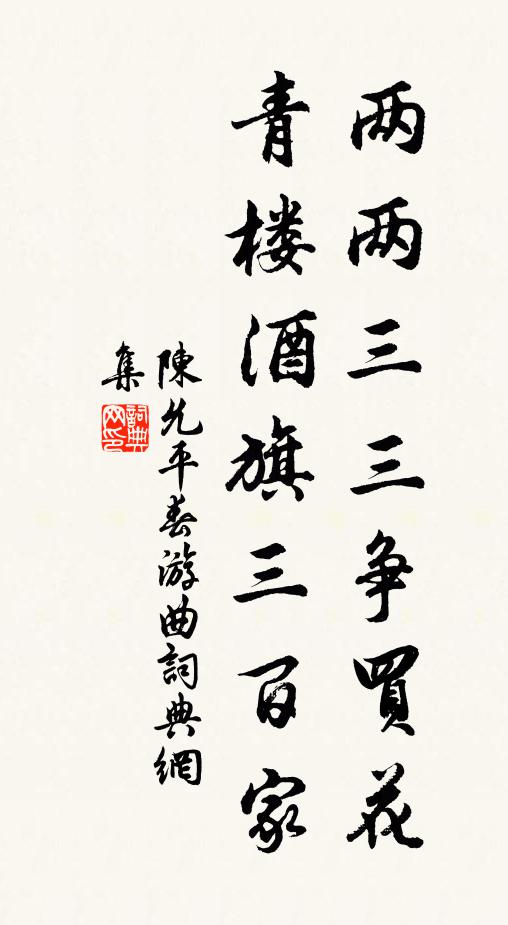 两两三三争買花
青楼酒旗三百家
陳允平春游曲詞典網
集
詞典网印